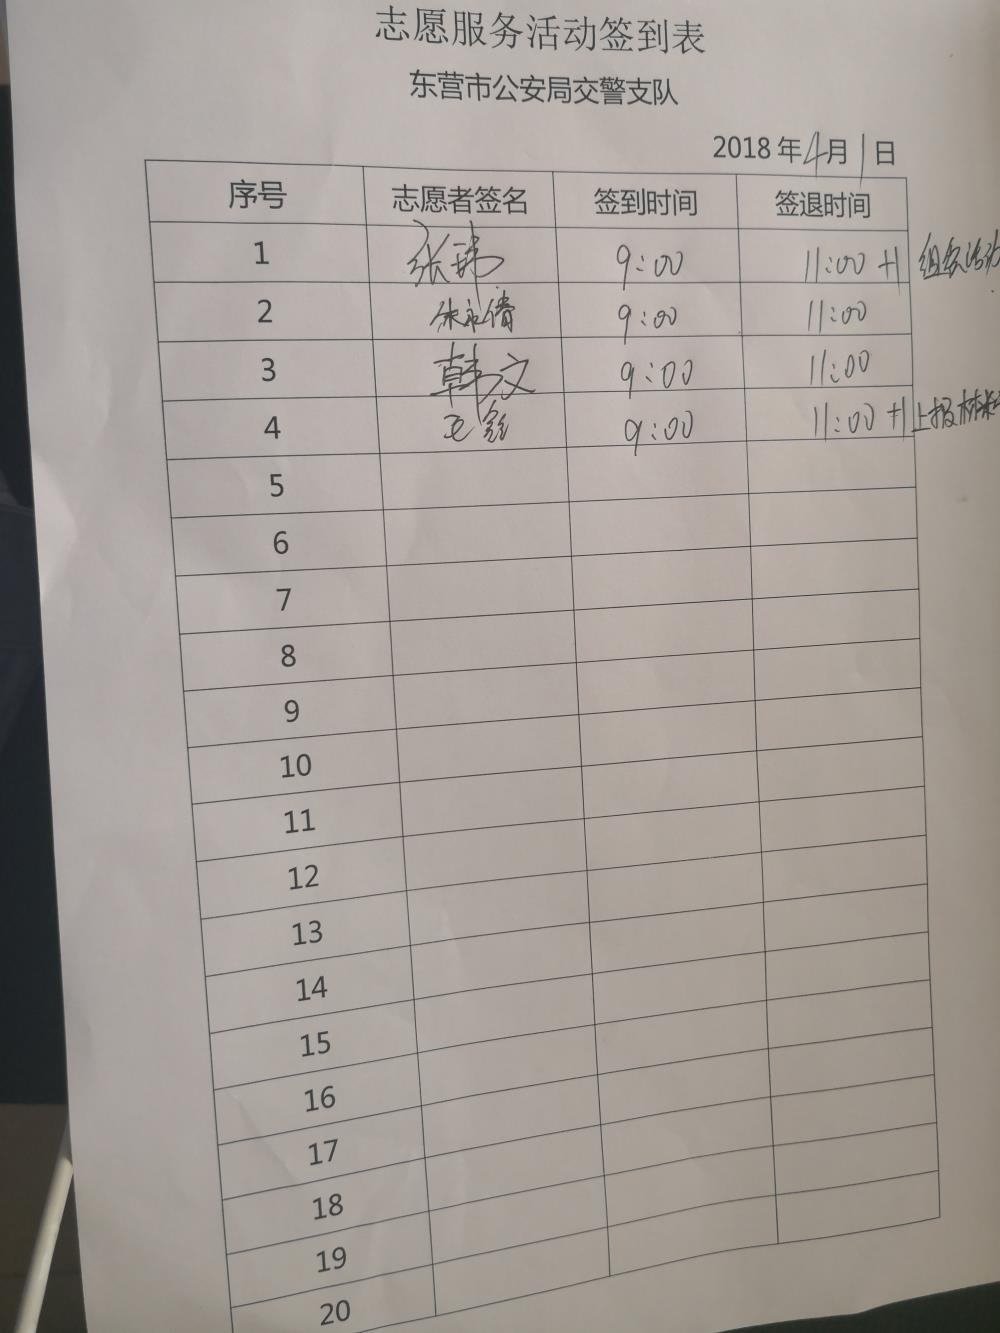 志愿服务活动签到表
东营市公安局交警支队
2018 年 4 月 1 日
序号 志愿者签名 签到时间 签退时间
1 张玮 9:00 11:00 +1 组织活动
2 9:00 11:00
3 韩文 9:00 11:00
4 9:00 11:00 +1 上报材料
5
6
7
8
9
10
11
12
13
14
15
16
17
18
19
20